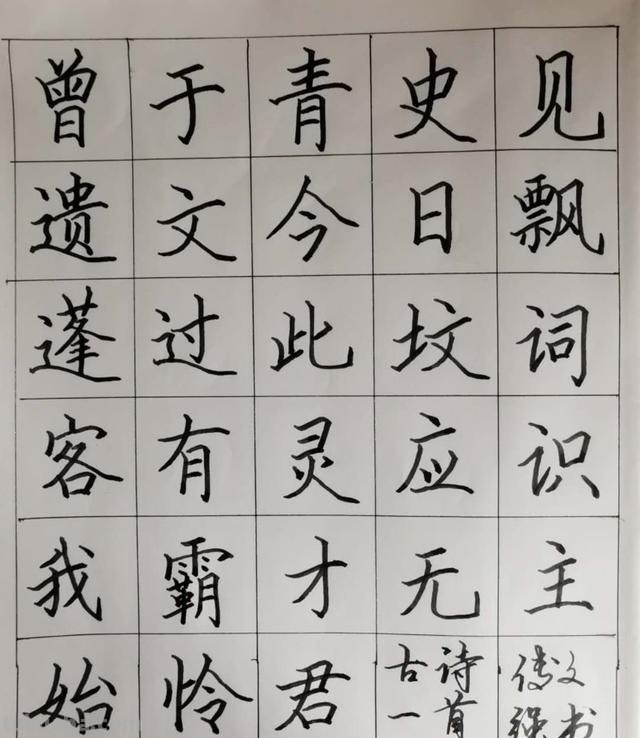 曾于青史见
遗文今日飘
蓬过此坟词
客有灵应识
我霸才无主
始怜君
古诗一首
文书